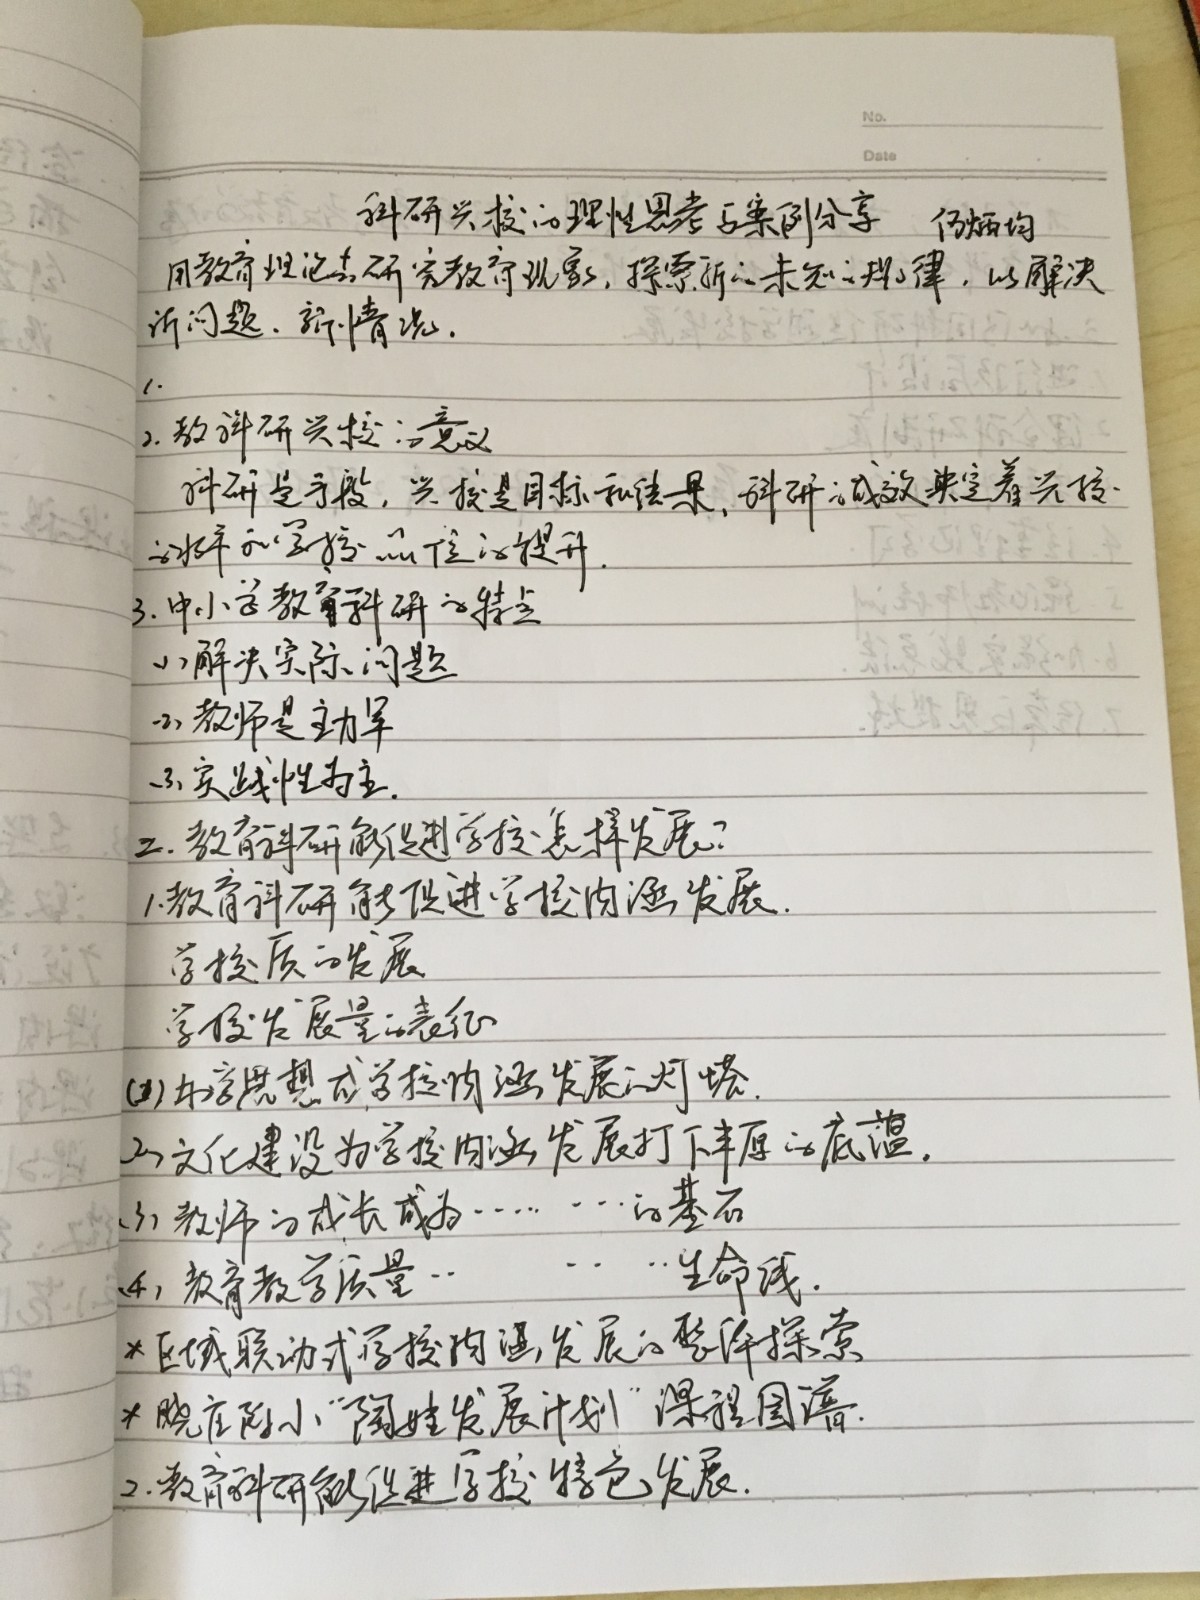 No.
Date
科研兴校的理性思考与案例分享
用教育理论去研究教育现象，探索新的未知的规律，以解决
新问题、新情况．
1.
2. 教科研兴校的意义
科研是手段，兴校是目标和结果，科研的成效决定着兴校
的水平和学校品位的提升．
3. 中小学教育科研的特点
(1) 解决实际问题
(2) 教师是主力军
(3) 实践性为主．
二．教育科研能促进学校怎样发展？
1. 教育科研能促进学校内涵发展．
学校质的发展
学校发展量的表征
(1) 办学思想成学校内涵发展的灯塔．
(2) 文化建设为学校内涵发展打下丰厚的底蕴．
(3) 教师的成长成为…… …的基石
(4) 教育教学质量‥ ‥ ‥生命线．
* 区域联动式学校内涵发展的整体探索
* 晓庄附小“陶娃发展计划”课程图谱．
2. 教育科研能促进学校特色发展．